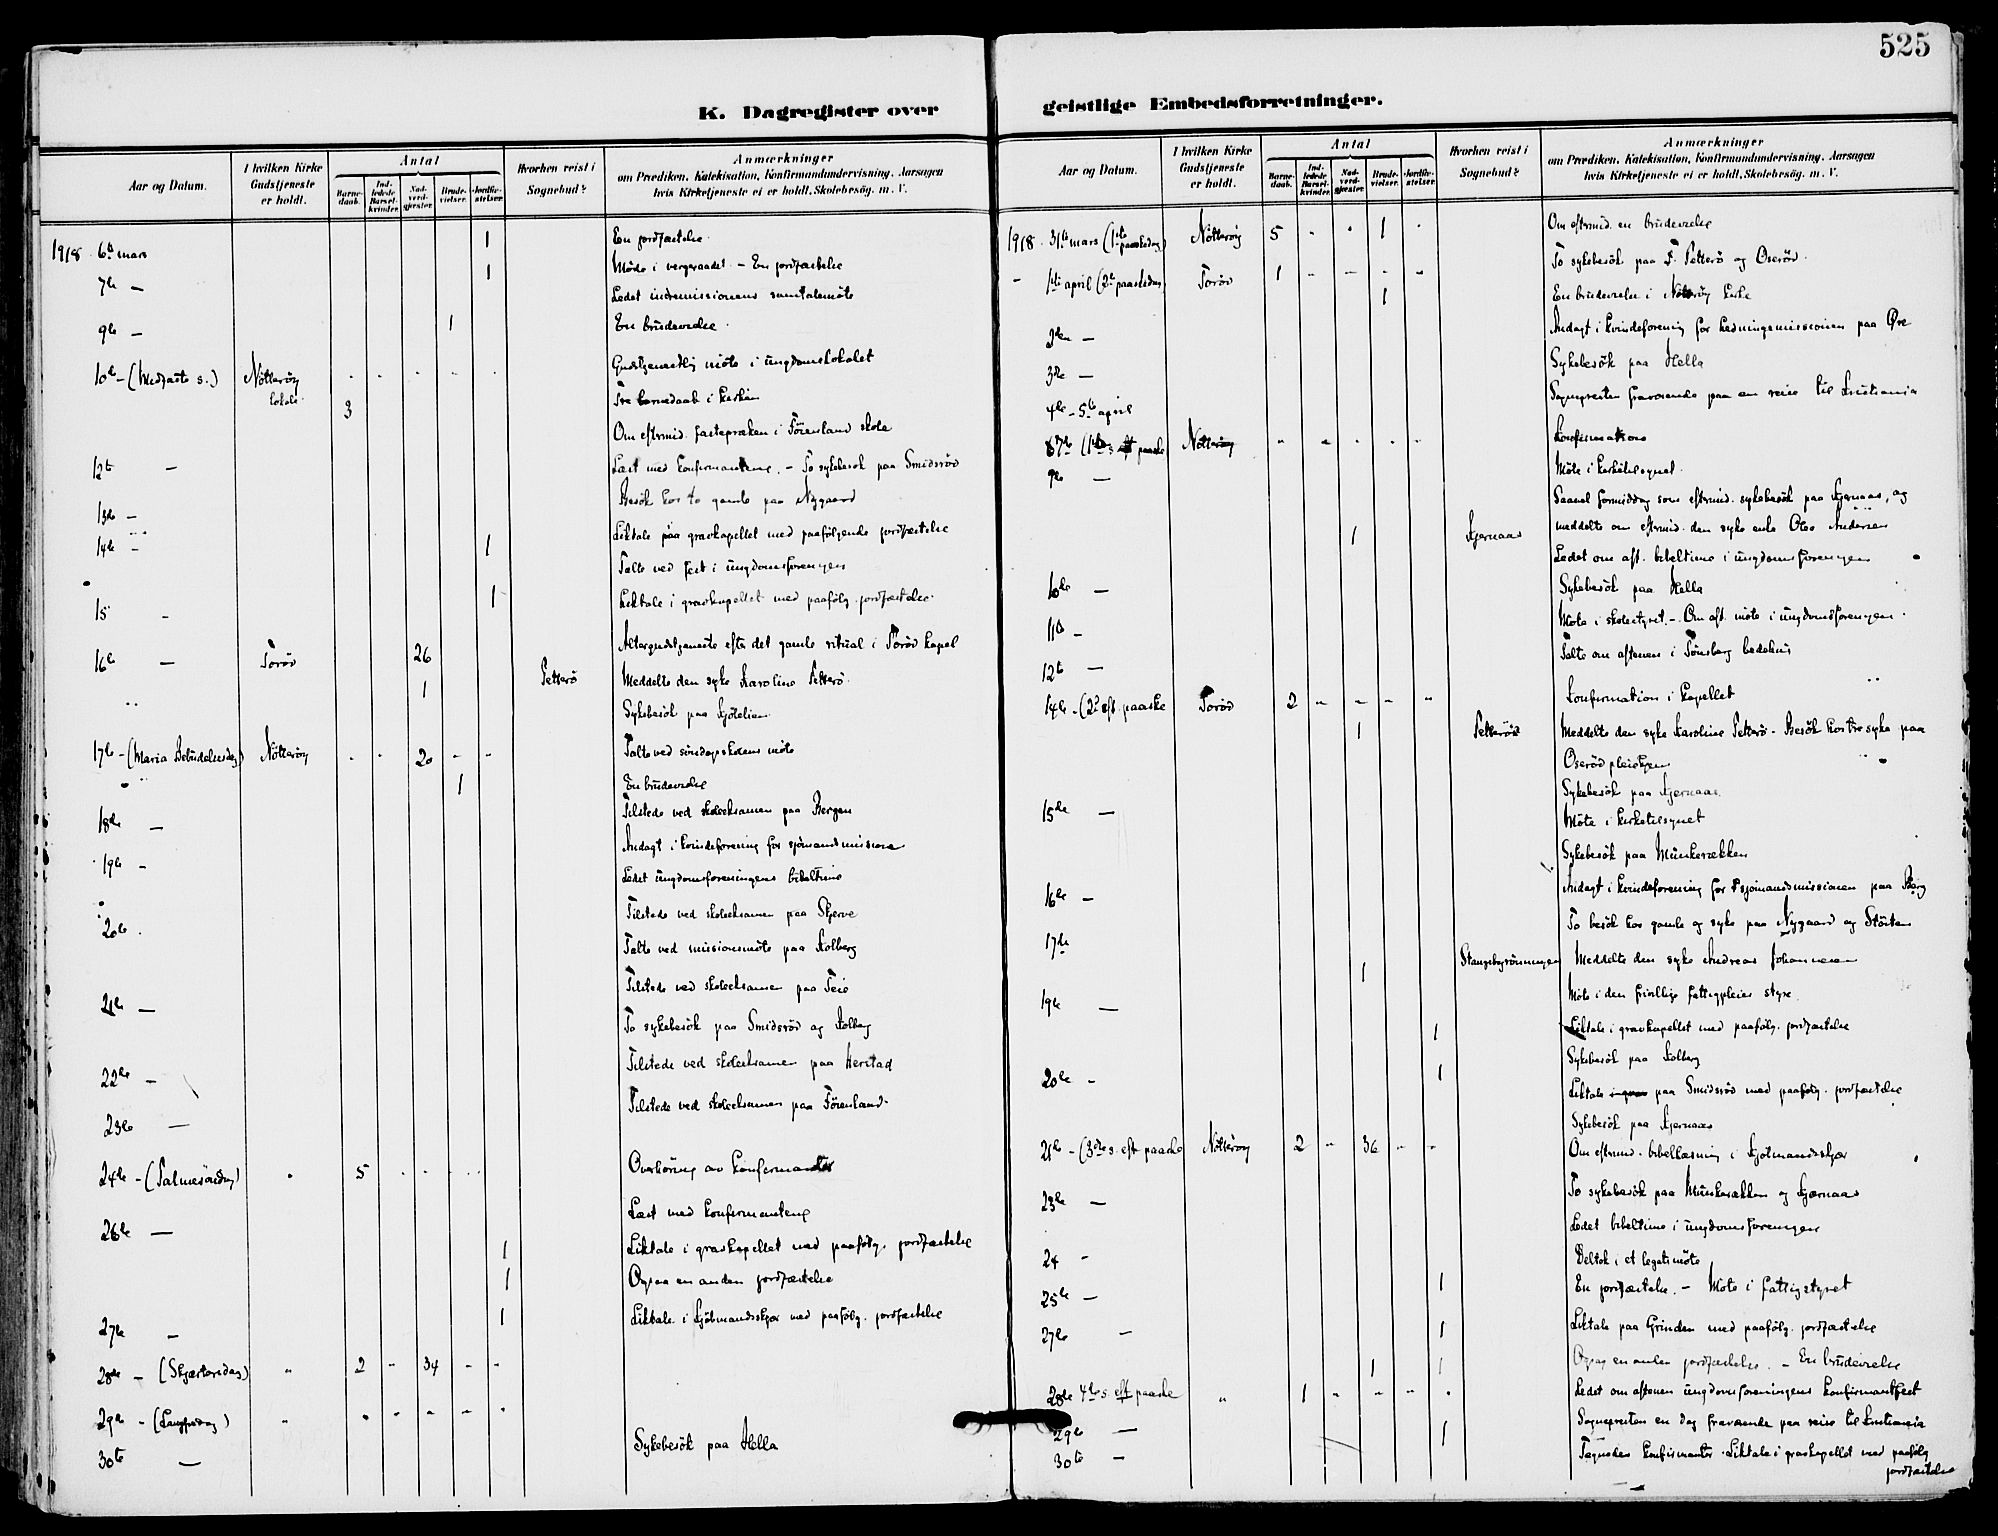 525
K. Dagregister over
Aar og Datum.
I hvilken Kirke Gudstjeneste er holdt.
Antal
Barnedaab.
Indledede Barselkvinder.
Nadverdgjester.
Brudevielser.
Jordfæstelser.
Hvorhen reist i Sognebud?
Anmærkninger
om Prædiken, Katekisation, Konfirmandundervisning, Aarsagen
hvis Kirketjeneste ei er holdt, Skolebesøg. m. V.
1918. 6te mars 1 En jordfæstelse.
7de — 1 Møde i vergeraadet. – En jordfæstelse
Ledet indremissionens samtalemöte
9de — 1 En brudevielse.
10de – (Midfaste s.) Nötteröy lokale Gudstjenestlig möte i ungdomslokalet
3 Tre barnedaab i kirken
Om eftermid. fastepræken i Föienland skole
12te — Læst med konfirmantene. – To sykebesök paa Smidsröd
Besök hos to gamle paa Nygaard
13de —
14de – 1 Liktale paa gravkapellet med paafölgende jordfæstelse
Talte ved fest i ungdomsforeningen
15 – 1 Liktale i gravkapellet med paafölg. jordfæstelse.
16de — Toröd 26 Altergudstjeneste efter det gamle ritual i Toröd kapel
1 Petterö Meddelte den syke Karoline Petterö.
Sykebesök paa Kjölelien
17de – (Maria Bebudelsesdag) Nötteröy - - 20 - - Talte ved söndagsskolens möte
1 En brudevielse
18de — Tilstede ved skoleeksamen paa Bergan
Andagt i kvindeforening for sjömandsmissionen
19de – Ledet ungdomsforeningens bibeltime
20de. Tilstede ved skoleeksamen paa Skjerve
Talte ved missionsmöte paa Kolberg
21de — Tilstede ved skoleeksamen paa Teie
To sykebesök paa Smidsröd og Kolberg
22de – Tilstede ved skoleeksamen paa Herstad
23de — Tilstede ved skoleeksamen paa Föienland.
24de – (Palmesöndag) " 5 - - - - Overhöring av konfirmanter
26de — Læst med konfirmantene
1 Liktale i gravkapellet med paafölg. jordfæstelse
1 Ogsaa en anden jordfæstelse
27de – 1 Liktale i Kjöbmandsskjær med paafölg. jordfæstelse
28de – (Skjærtorsdag) " 2 - 34 - -
29de – (Langfredag) " - - - - -
30te — Sykebesök paa Hella
geistlige Embedsforretninger.
Aar og Datum.
I hvilken Kirke Gudstjeneste er holdt.
Antal
Barnedaab.
Indledede Barselkvinder.
Nadverdgjester.
Brudevielser.
Jordfæstelser.
Hvorhen reist i Sognebud?
Anmærkninger
om Prædiken, Katekisation, Konfirmandundervisning, Aarsagen
hvis Kirketjeneste ei er holdt, Skolebesög. m. V.
1918. 31te mars (1ste paaskedag) Nötteröy 5 - - 1 - Om eftermid. en brudevielse
To sykebesök paa F. Petterö og Oseröd.
– 1ste april (2de paaskedag) Toröd 1 - - - -
1 En brudevielse i Nötteröy kirke
2den — Andagt i kvindeforening for hedningemissionen paa Øre
3die — Sykebesök paa Hella
4de – 5te april Sognepresten fraværende paa en reise til Kristiania
7de (1ste s eft paaske Nötteröy - - - - - Konfirmation
9de — Möte i kirketilsynet.
Saavel formiddag som eftermid. sykebesök paa Kjernaas, og
1 Kjernaas meddelte om eftermid. den syke enke Olea Andersen
Ledet om aft. bibeltime i ungdomsforeningen
10de — Sykebesök paa Hella
11te – Möte i skolestyret. – Om aft. möte i ungdomsforeningen.
12te — Talte om aftenen i Tönsberg bedehus
14de – (2 s eft paaske Toröd 2 - - - - Konfirmation i kapellet
1 Petteröd Meddelte den syke Karoline Petterö. Besök hos tre syke paa
Oseröd pleiehjem
Sykebesök paa Kjernaas.
15de — Möte i kirketilsynet
Sykebesök paa Munkerekken
16de – Andagt i kvindeforening for sjömandsmissionen paa Berg
To besök hos gamle og syke paa Nygaard og Störten
17de 1 Meddelte den syke Andreas Johannesen
19de — Möte i den frivillige fattigpleies styre.
1 Liktale i gravkapellet med paafölg. jordfæstelse
Sykebesök paa Kolberg
20de – 1 Liktale paa Smidsröd med paafölg. jordfæstelse
Sykebesök paa Kjernaas
21de – (3die s. eft paaske Nötteröy 2 - 36 - - Om eftermid. bibellæsning i Kjöbmandsskjær
23de — To sykebesök paa Munkerekken og Kjærnaas
Ledet bibeltime i ungdomsforeningen
24 – Deltok i et legatsmöte
25de — 1 En jordfæstelse. – Möte i fattigstyret
27de — 1 Liktale paa Grinden med paafölg. jordfæstelse
1 1 Ogsaa en anden jordfæstelse. – En brudevielse
28de 4de s. eft paaske " 1 - - - - Ledet om aftenen ungdomsforeningens konfirmantfest
29de — Sognepresten en dag fraværende paa reise til Kristiania
30te – 1 konfirmanter. Liktale i gravkapellet med paafölg
jordfæstelse